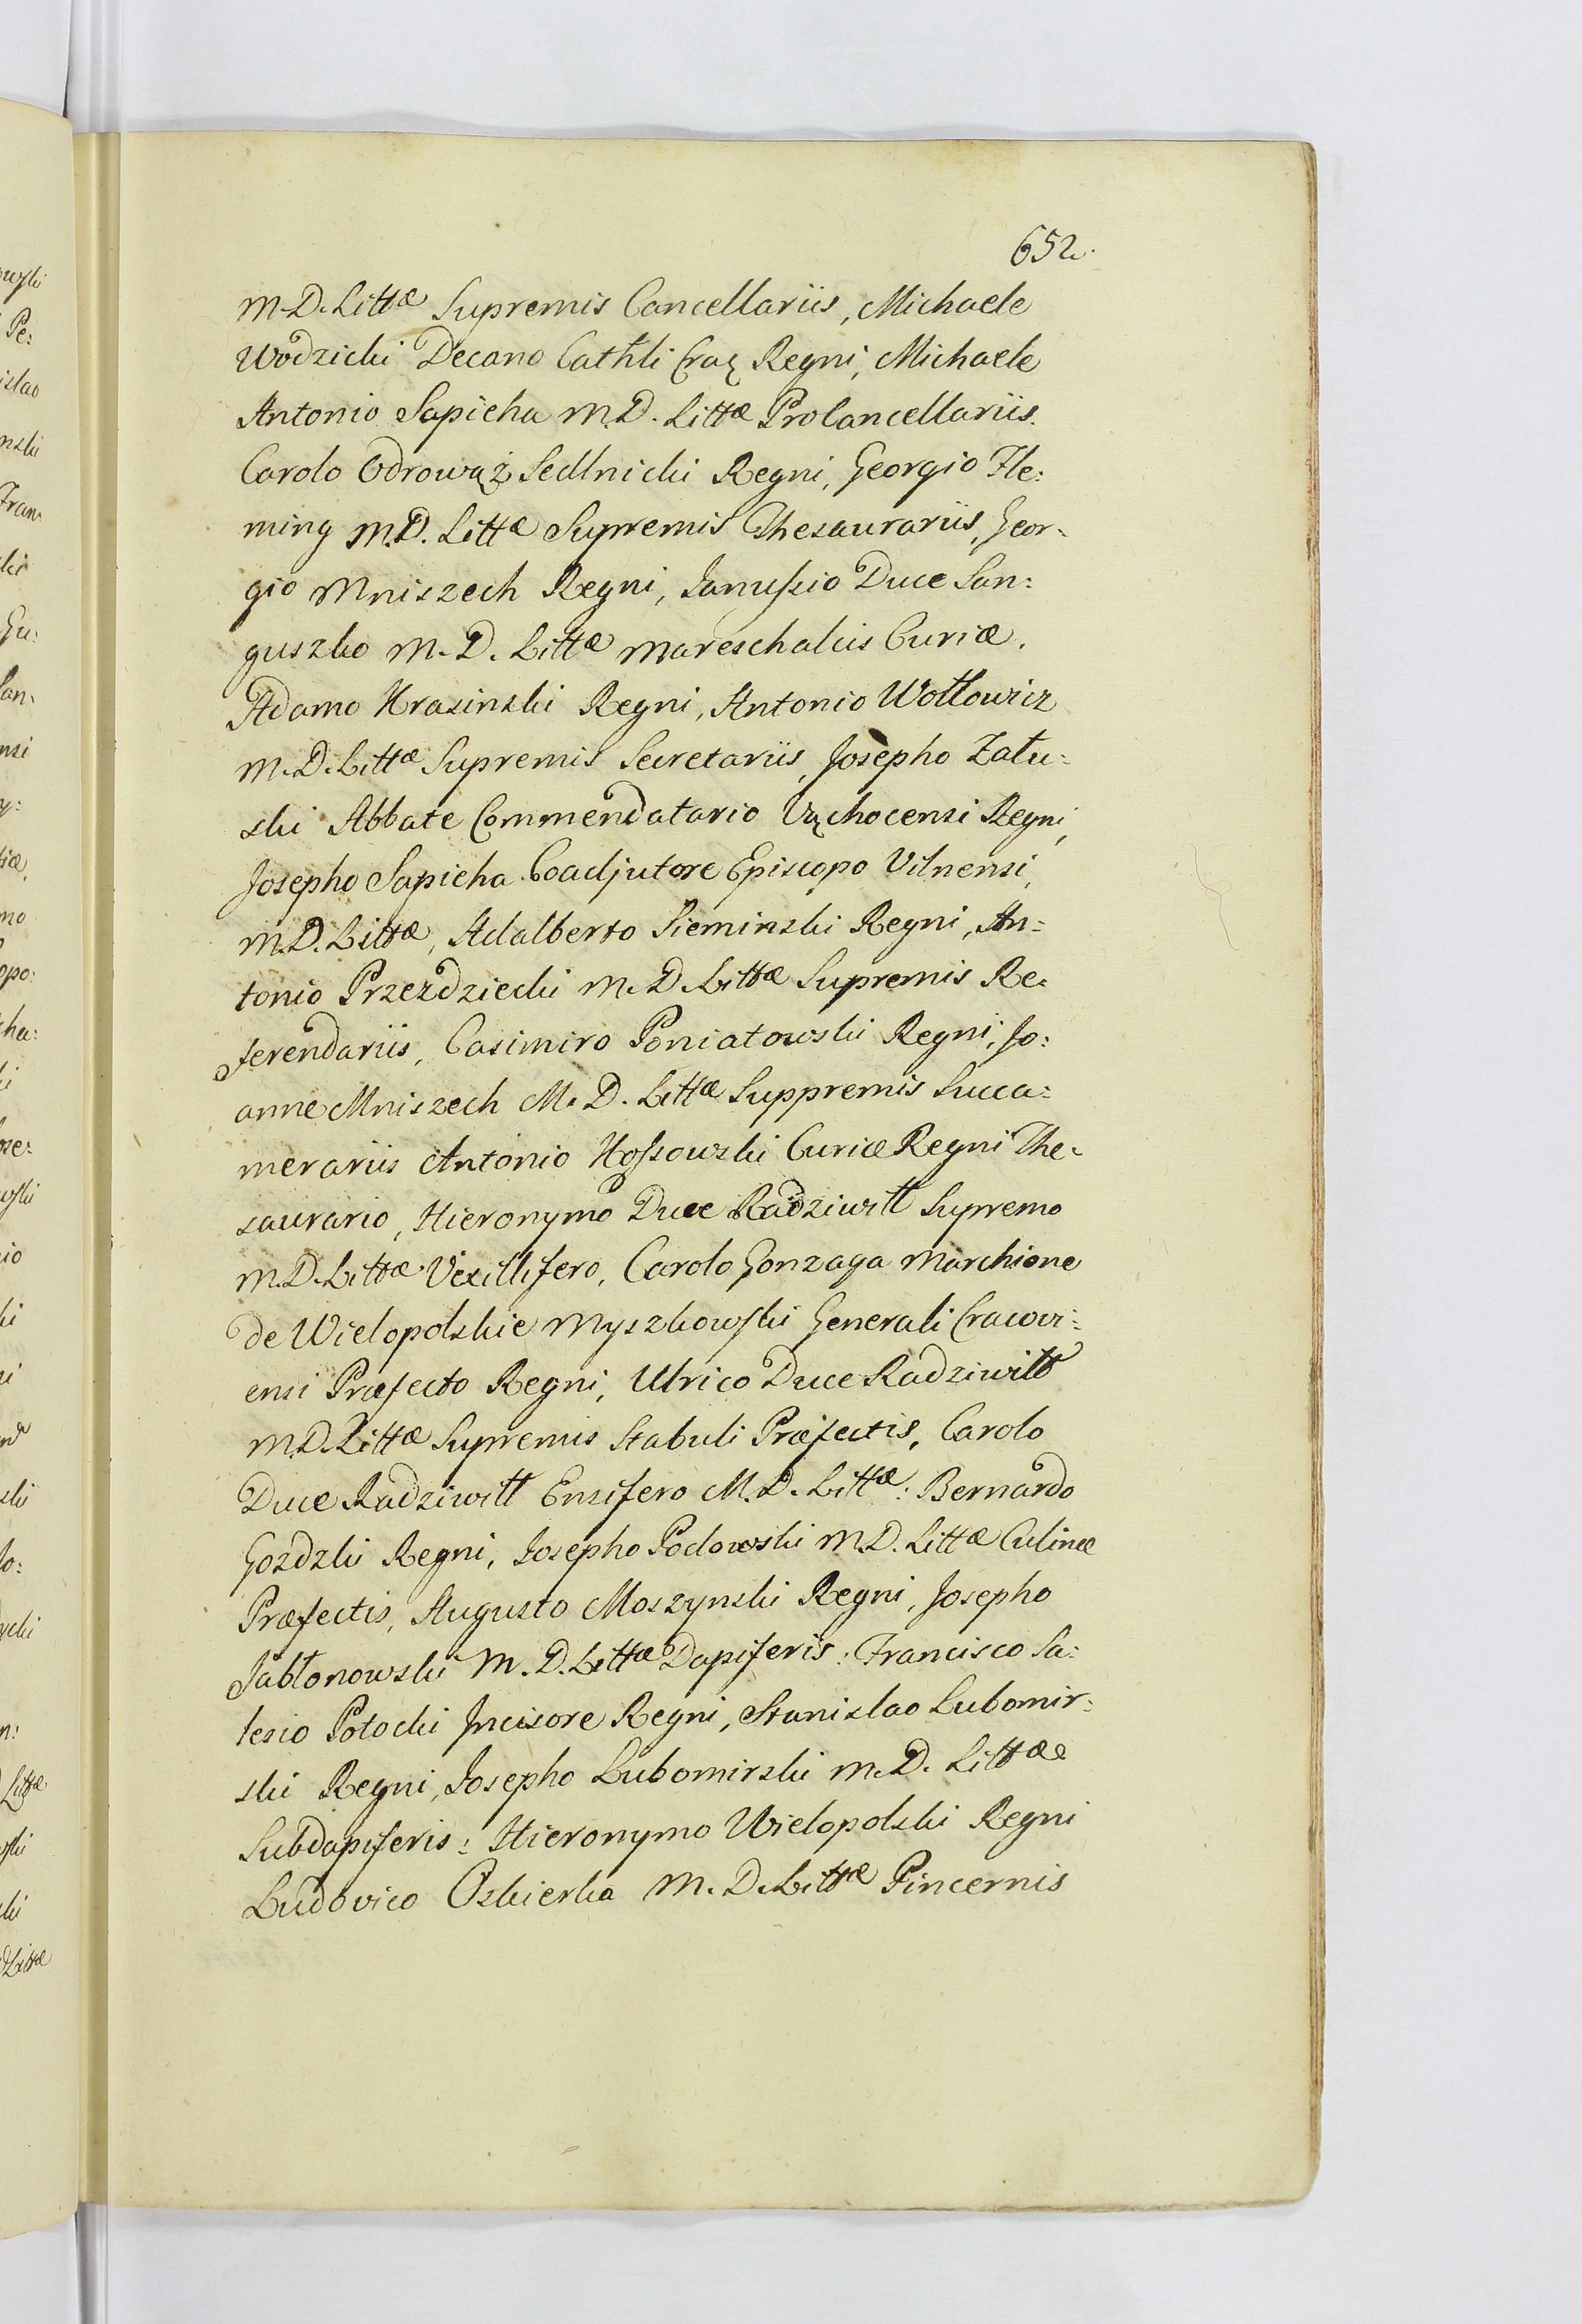 652.
M.D.Littæ Supremis Cancellariis, Michaele
Wodzicki Decano Cathli Crac Regni, Michaele
Antonio Sapieha M.D. Littæ ProCancellariis.
Carolo Odrowąż Sedlnicki Regni, Georgio Fle:
ming M.D. Littæ Supremis Thesaurariis, Geor:
gio Mniszech Regni, Janussio Duce San:
guszko M.D. Littæ Mareschalcis Curiæ.
Adamo Krasinski Regni, Antonio Wołłowicz
M.D. Littæ Supremis Secretariis, Josepho Zału:
ski Abbate Commendatario Vąchocensi Regni,
Josepho Sapieha Coadjutore Episcopo Vilnensi,
M.D. Littæ, Adalberto Sieminski Regni, An:
tonio Przezdziecki M.D. Littæ Supremis Re:
ferendariis, Casimiro Poniatowski Regni, Jo:
anne Mniszech M.D. Littæ Suppremis Succa:
merariis Antonio Kossowski Curiæ Regni The:
saurario, Hieronymo Duce Radziwiłł Supremo
M.D. Littæ Vexillifero, Carolo Gonzaga Marchione
de Wielopolskie Myszkowski Generali Cracovi:
ensi Præfecto Regni, Ulrico Duce Radziwiłł
M.D. Littæ Supremis Stabuli Præfectis, Carolo
Duce Radziwiłł Ensifero M.D. Littæ: Bernardo
Gozdzki Regni, Josepho Pociowski M.D. Littæ Culinæ
Præfectis, Augusto Moszynski Regni, Josepho
Jabłonowski M.D. Littæ Dapiferis: Francisco Sa:
lesio Potocki Incisore Regni, Stanislao Lubomir:
ski Regni, Josepho Lubomirski M.D. Littæ
Subdapiferis: Hieronymo Wielopolski Regni
Ludovico Oskierka M.D. Littæ Pincernis